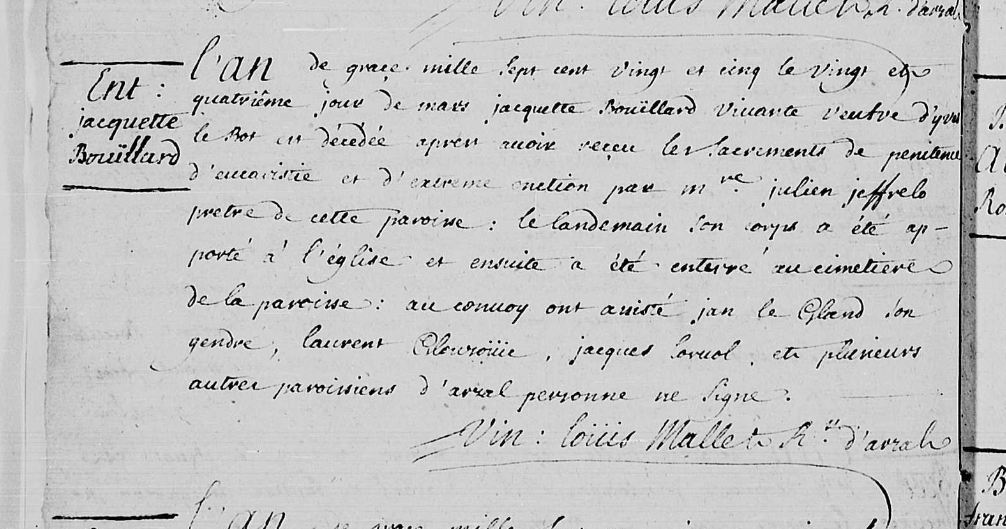 Vin : Louis Mallet r. d'arzal
Ent :
jacquette
Boüillard
l'an de grace mille sept cent vingt et cinq le vingt et
quatriême jour de mars jacquette Boüillard vivante veufve d'yves
le Bot est décédée apres avoir reçeu les sacrements de penitence
d'eucaristie et d'extreme onction par mre julien jeffrelo
pretre de cette paroisse : le landemain son corps a été ap-
porté à l'église et ensuite a été enterré au cimetiere
de la paroisse : au convoy ont assisté jan le Gland son
gendre, laurent, jacques et plusieurs
autres paroissiens d'arzal personne ne signe.
Vin : Loüis Mallet Rr d'arzal
l'an de grace mille